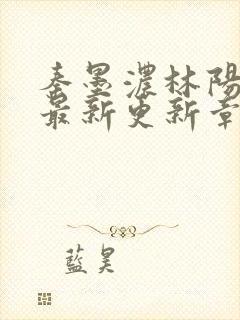 秦墨濃林陽
最新更新章
藍昊